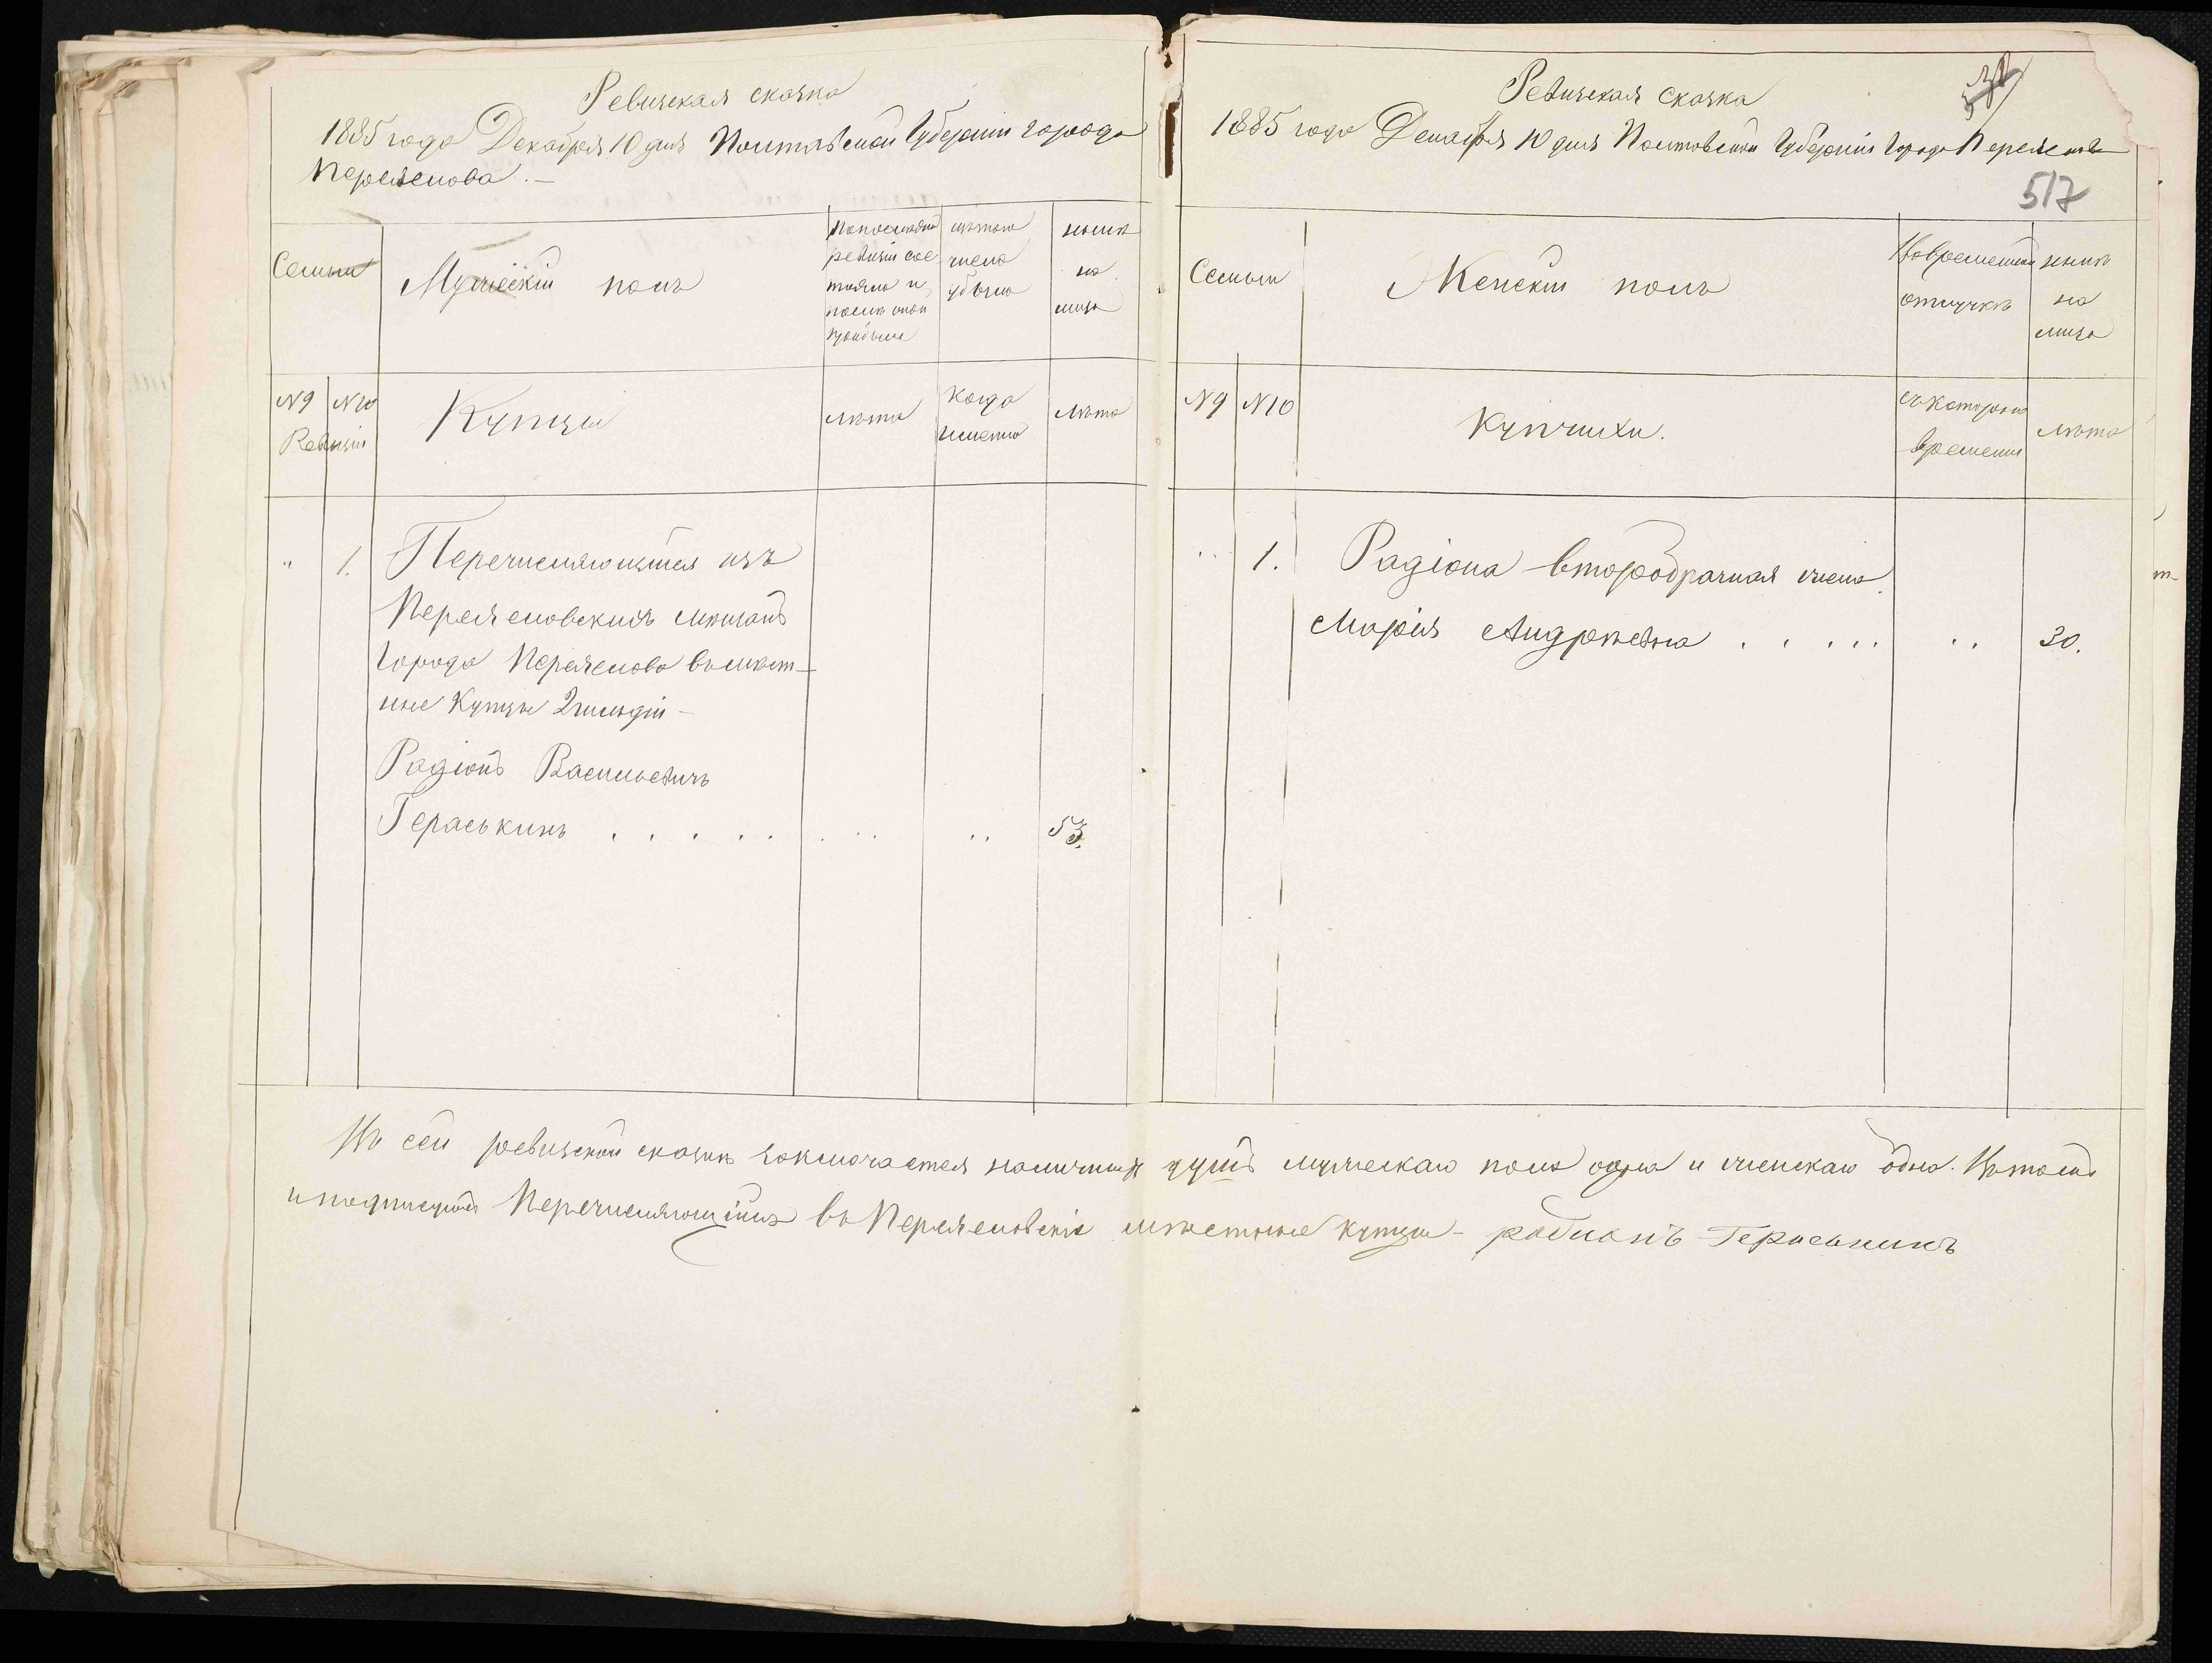 Ревизская сказка
1885 года Декабря 10 дня Полтавской Губернии города
Переяслова. –
Семьи
Мужескій полъ
по последней
ревизіи сос
тояло и
после оной
прибыло
изтого
числа
убыло
ныне
на
лицо
№ 9 № 10
Ревизіи
Купцы
лета
когда
именно
лета
" 1. Перечисляющийся изъ
Переясловскихъ мещанъ
города Переяслова въ мест–
ные Купцы 2 гильдіи –
Радіонъ Васильевичъ
Гераськинъ . . . . . . . . . . 53.
Ревизская сказка
1885 года Декабря 10 дня Полтавской Губерніи города Переяслова
517
Семьи
Женскій полъ
Вовременной
отлучке
ныне
на
лицо
№ 9 № 10
Купчихи.
съ котораго
времени
лета
" 1. Радіона второбрачная жена
Марія Андреевна . . . . . . . 30.
Въ сей ревизской сказке заключается наличныхъ душъ мужескаго пола одна и женскаго одна. Въ томъ
и подписуюсь Перечисляющійся въ Переясловскіе местные купцы – радионъ Гераськинъ